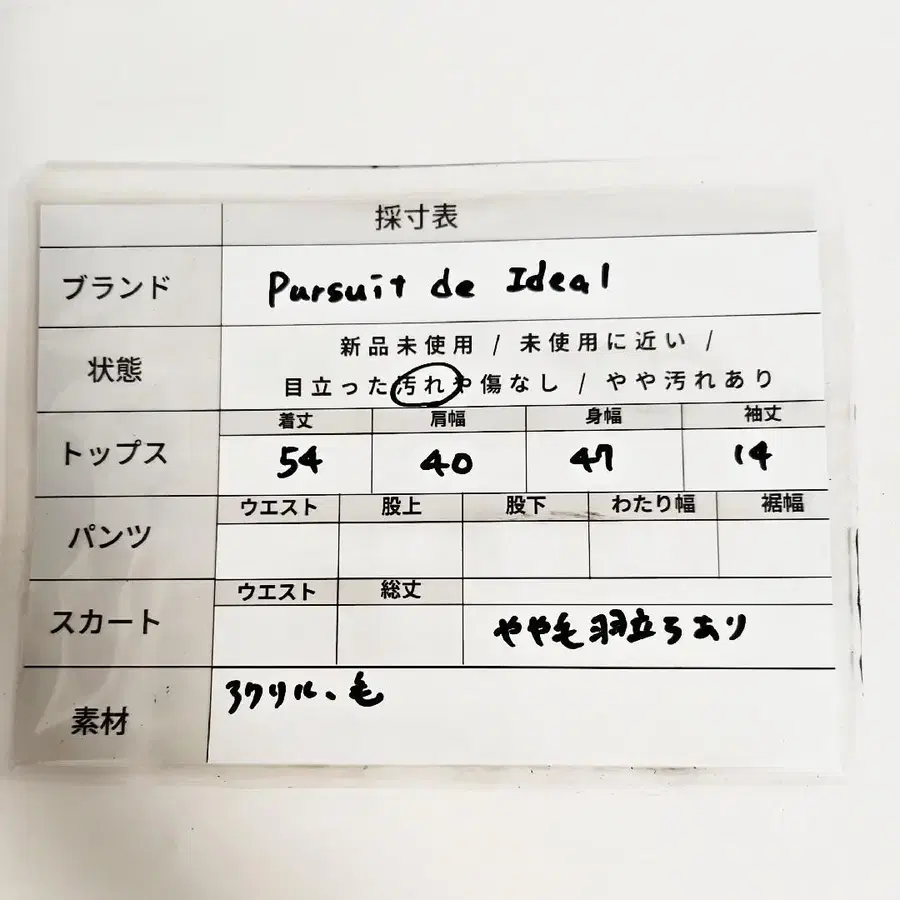 採寸表
ブランド Pursuit de Ideal
状態 新品未使用 / 未使用に近い /
目立った汚れや傷なし / やや汚れあり
着丈 肩幅 身幅 袖丈
トップス 54 40 47 14
ウエスト 股上 股下 わたり幅 裾幅
パンツ
ウエスト 総丈
スカート やや毛羽立ちあり
素材 アクリル、毛